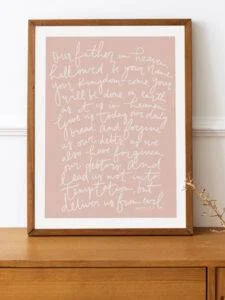 our father in heaven
hallowed is your name
your kingdom come your
will be done on earth
as it is in heaven
Give us today our daily
bread and forgive
us our debts as we
also have forgiven
our debtors. And
lead us not into
Temptation but
deliver us from evil